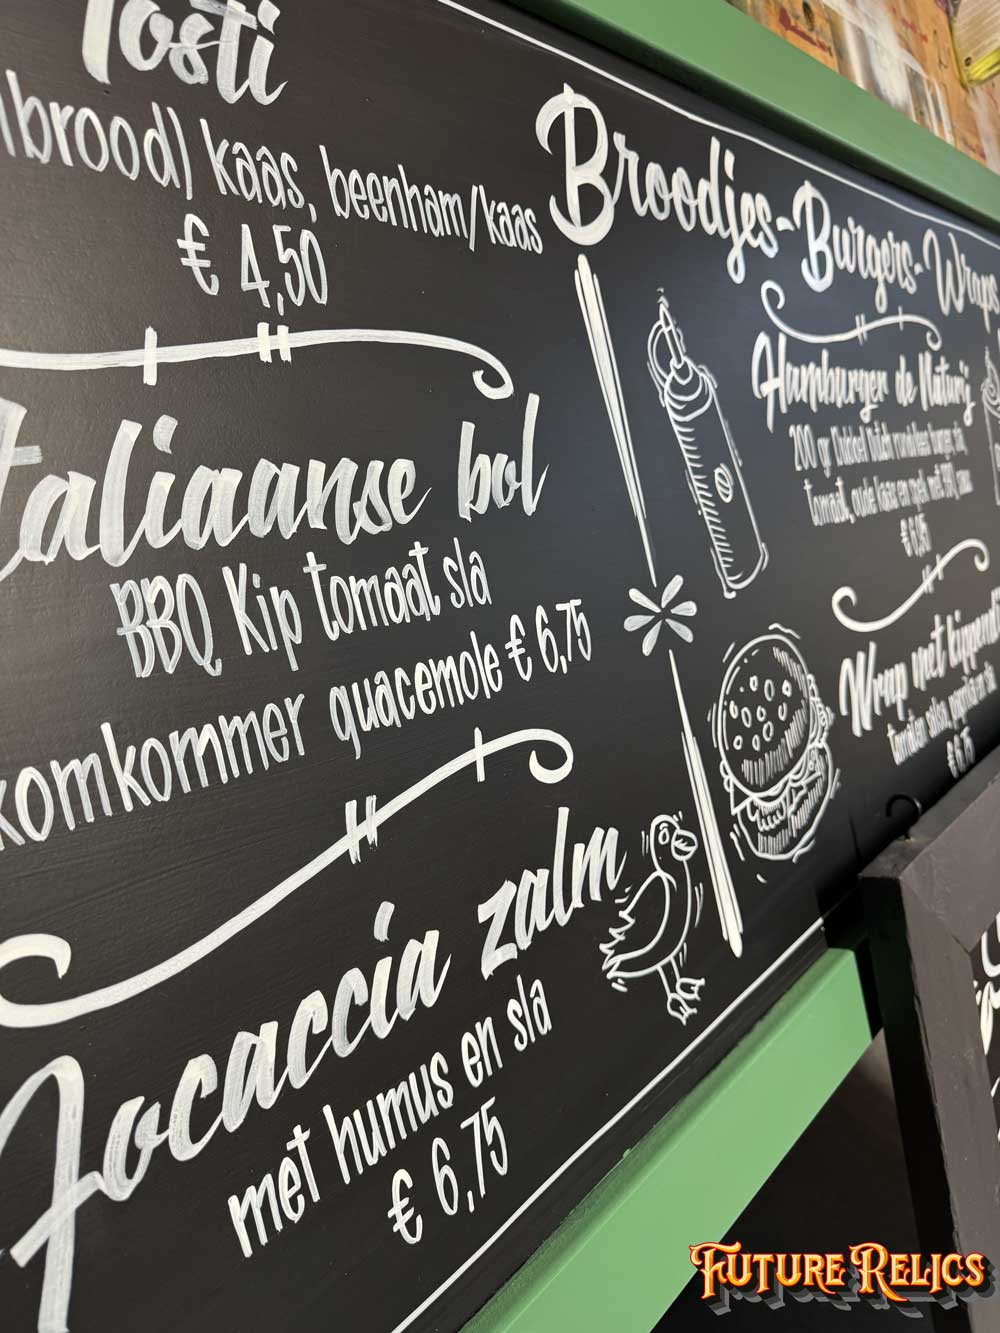 Tosti
kaas, beenham/kaas
€ 4,50
Italiaanse bol
BBQ Kip tomaat sla
komkommer guacemole € 6,75
Focaccia zalm
met humus en sla
€ 6,75
Broodjes-Burgers-Wraps
Hamburger de Naturij
200 gr
tomaat, oude kaas en
Wrap met
€ 6,75
FUTURE RELICS